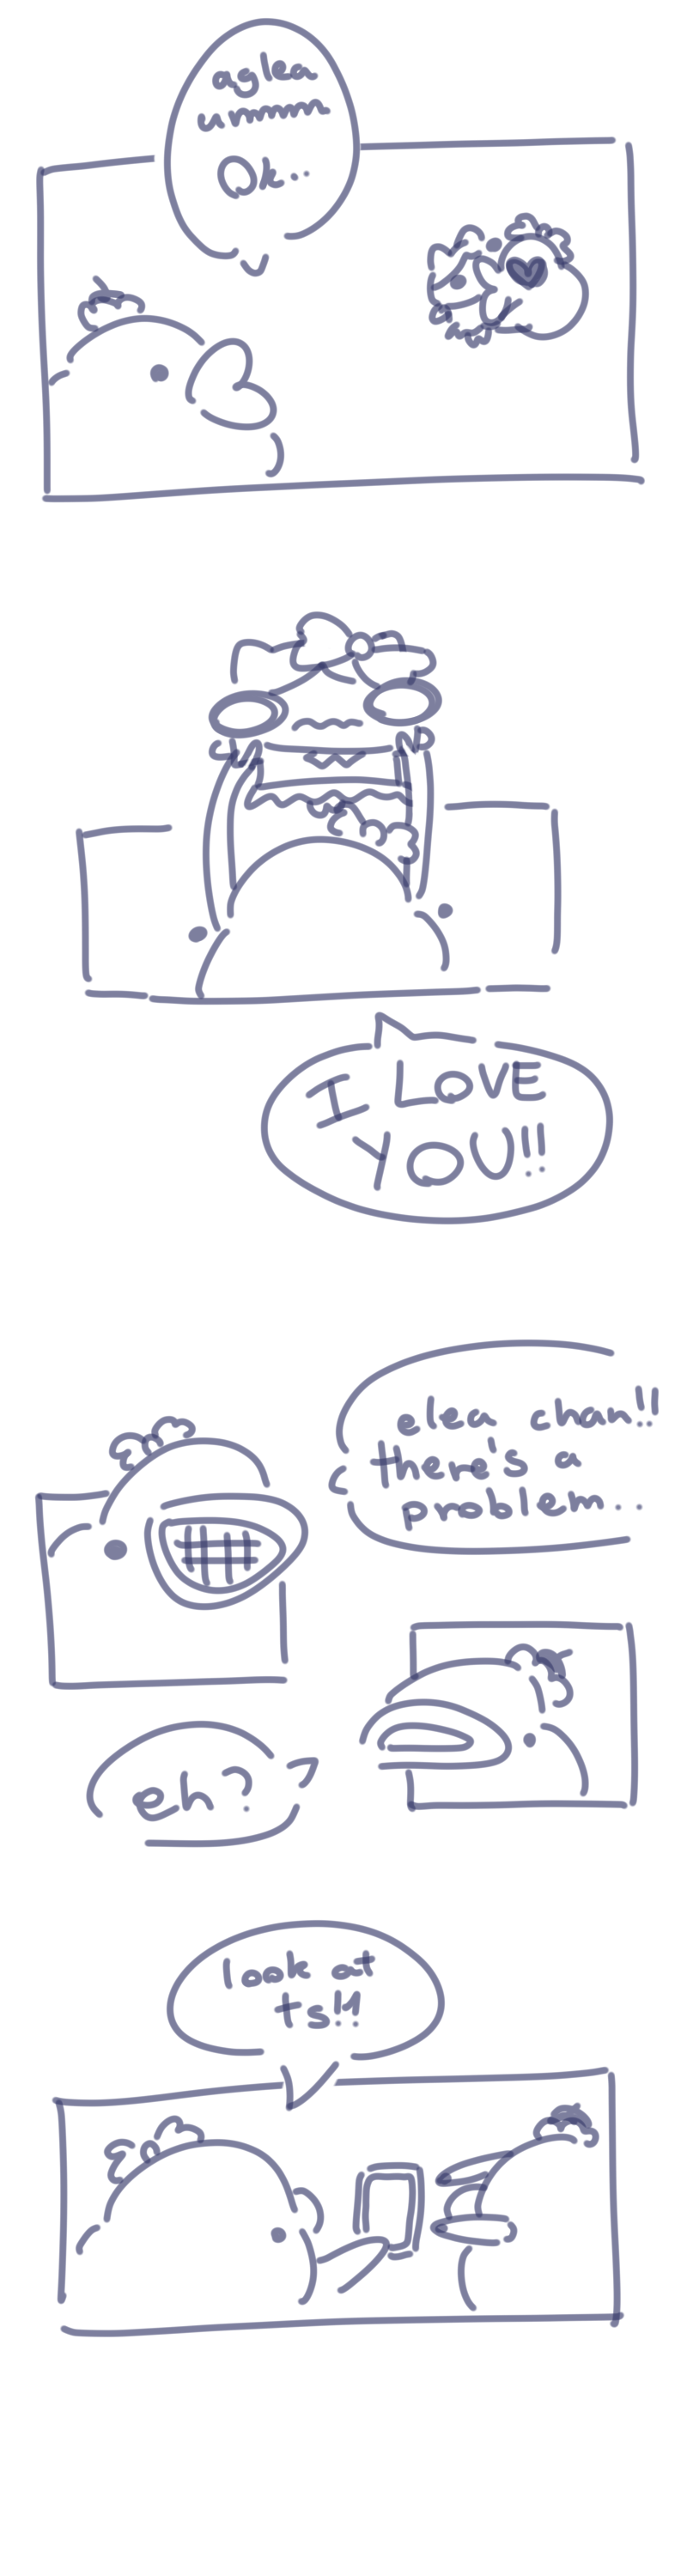 aglea
ummmm
Ok..
I LOVE
YOU!!
elea chan!!
there's a
problem..
eh?
look at
ts!!